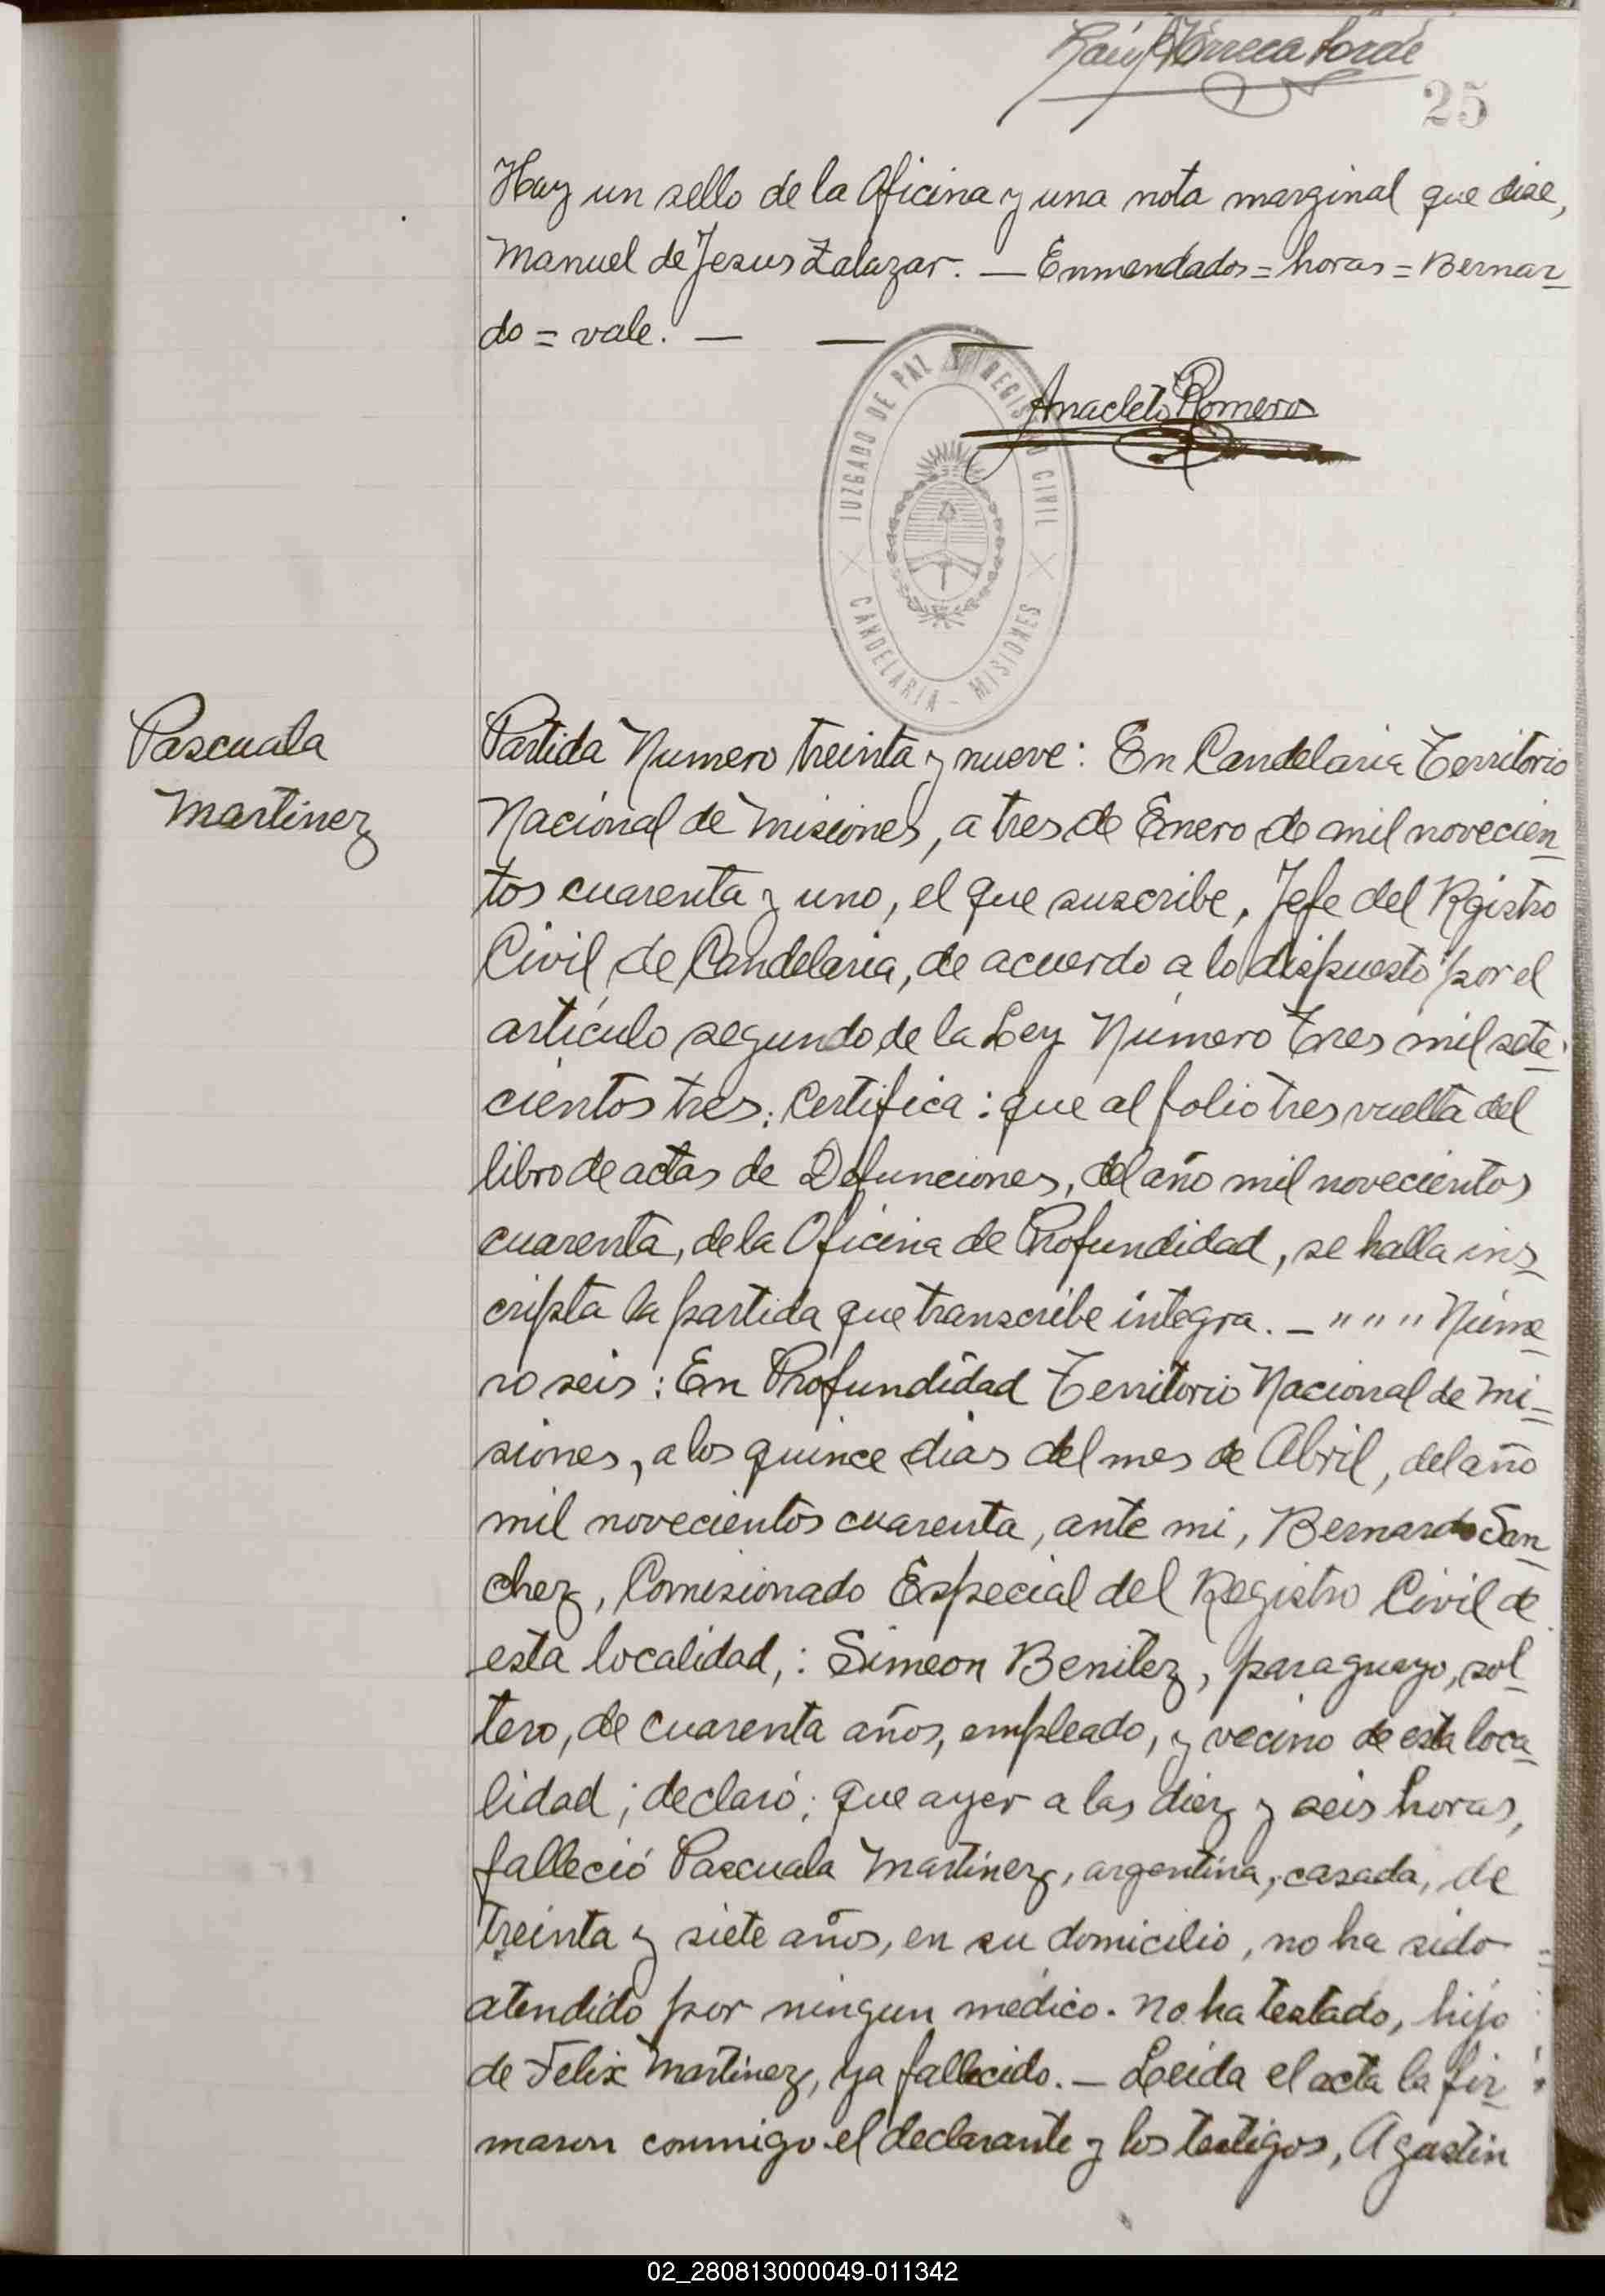 25
Hay un sello de la Oficina y una nota marginal que dise,
Manuel de Jesus Zalazar. — Enmendados = horas = Bernar
do = vale. — — —
Anacleto Romero
JUZGADO DE PAZ Y REGISTRO CIVIL
CANDELARIA - MISIONES
Pascuala
Martinez
Partida Numero treinta y nueve: En Candelaria Territorio
Nacional de Misiones, a tres de Enero de mil novecien
tos cuarenta y uno, el que suscribe, Jefe del Rgistro
Civil de Candelaria, de acuerdo a lo dispuesto por el
artículo segundo de la Ley Número Tres mil sete
cientos tres: Certifica: que al folio tres vuelta del
libro de actas de Defunciones, del año mil novecientos
cuarenta, de la Oficina de Profundidad, se halla ins
cripta la partida que transcribe integra. — " " " Núme
ro seis: En Profundidad Territorio Nacional de Mi=
siones, a los quince dias del mes de Abril, del año
mil novecientos cuarenta, ante mi, Bernardo San
chez, Comisionado Especial del Registro Civil de
esta localidad,: Simeon Benitez, paraguayo, sol
tero, de cuarenta años, empleado, y vecino de esta loca
lidad; declaró: que ayer a las diez y seis horas,
falleció Pascuala Martinez, argentina, casada, de
treinta y siete años, en su domicilio, no ha sido
atendido por ningun médico. No ha testado, hijo
de Felix Martinez, ya fallecido. — Leida el acta la fir
maron conmigo el declarante y los testigos, Agustin
02_280813000049-011342